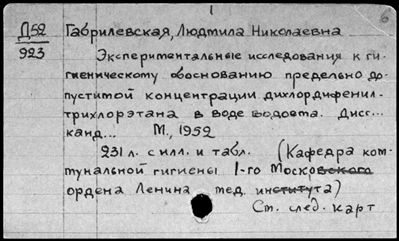 1
6
Д52 Габрилевская, Людмила Николаевна
923 Экспериментальные исследования к ги-
гиеническому обоснованию предельно до-
пустимой концентрации дихлордифенил-
трихлорэтана в воде водоёта. Дисс...
канд... М., 1952
231 л. с илл. и табл. (Кафедра ком-
мунальной гигиены 1-го Московского
ордена Ленина мед. института)
См. след. карт